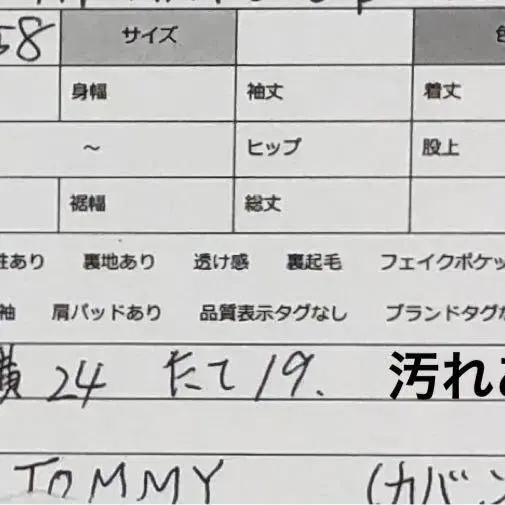 58 サイズ
身幅 袖丈 着丈
～ ヒップ 股上
裾幅 総丈
性あり 裏地あり 透け感 裏起毛 フェイクポケッ
袖 肩パッドあり 品質表示タグなし ブランドタグな
横 24 たて 19. 汚れあ
TOMMY (カバン